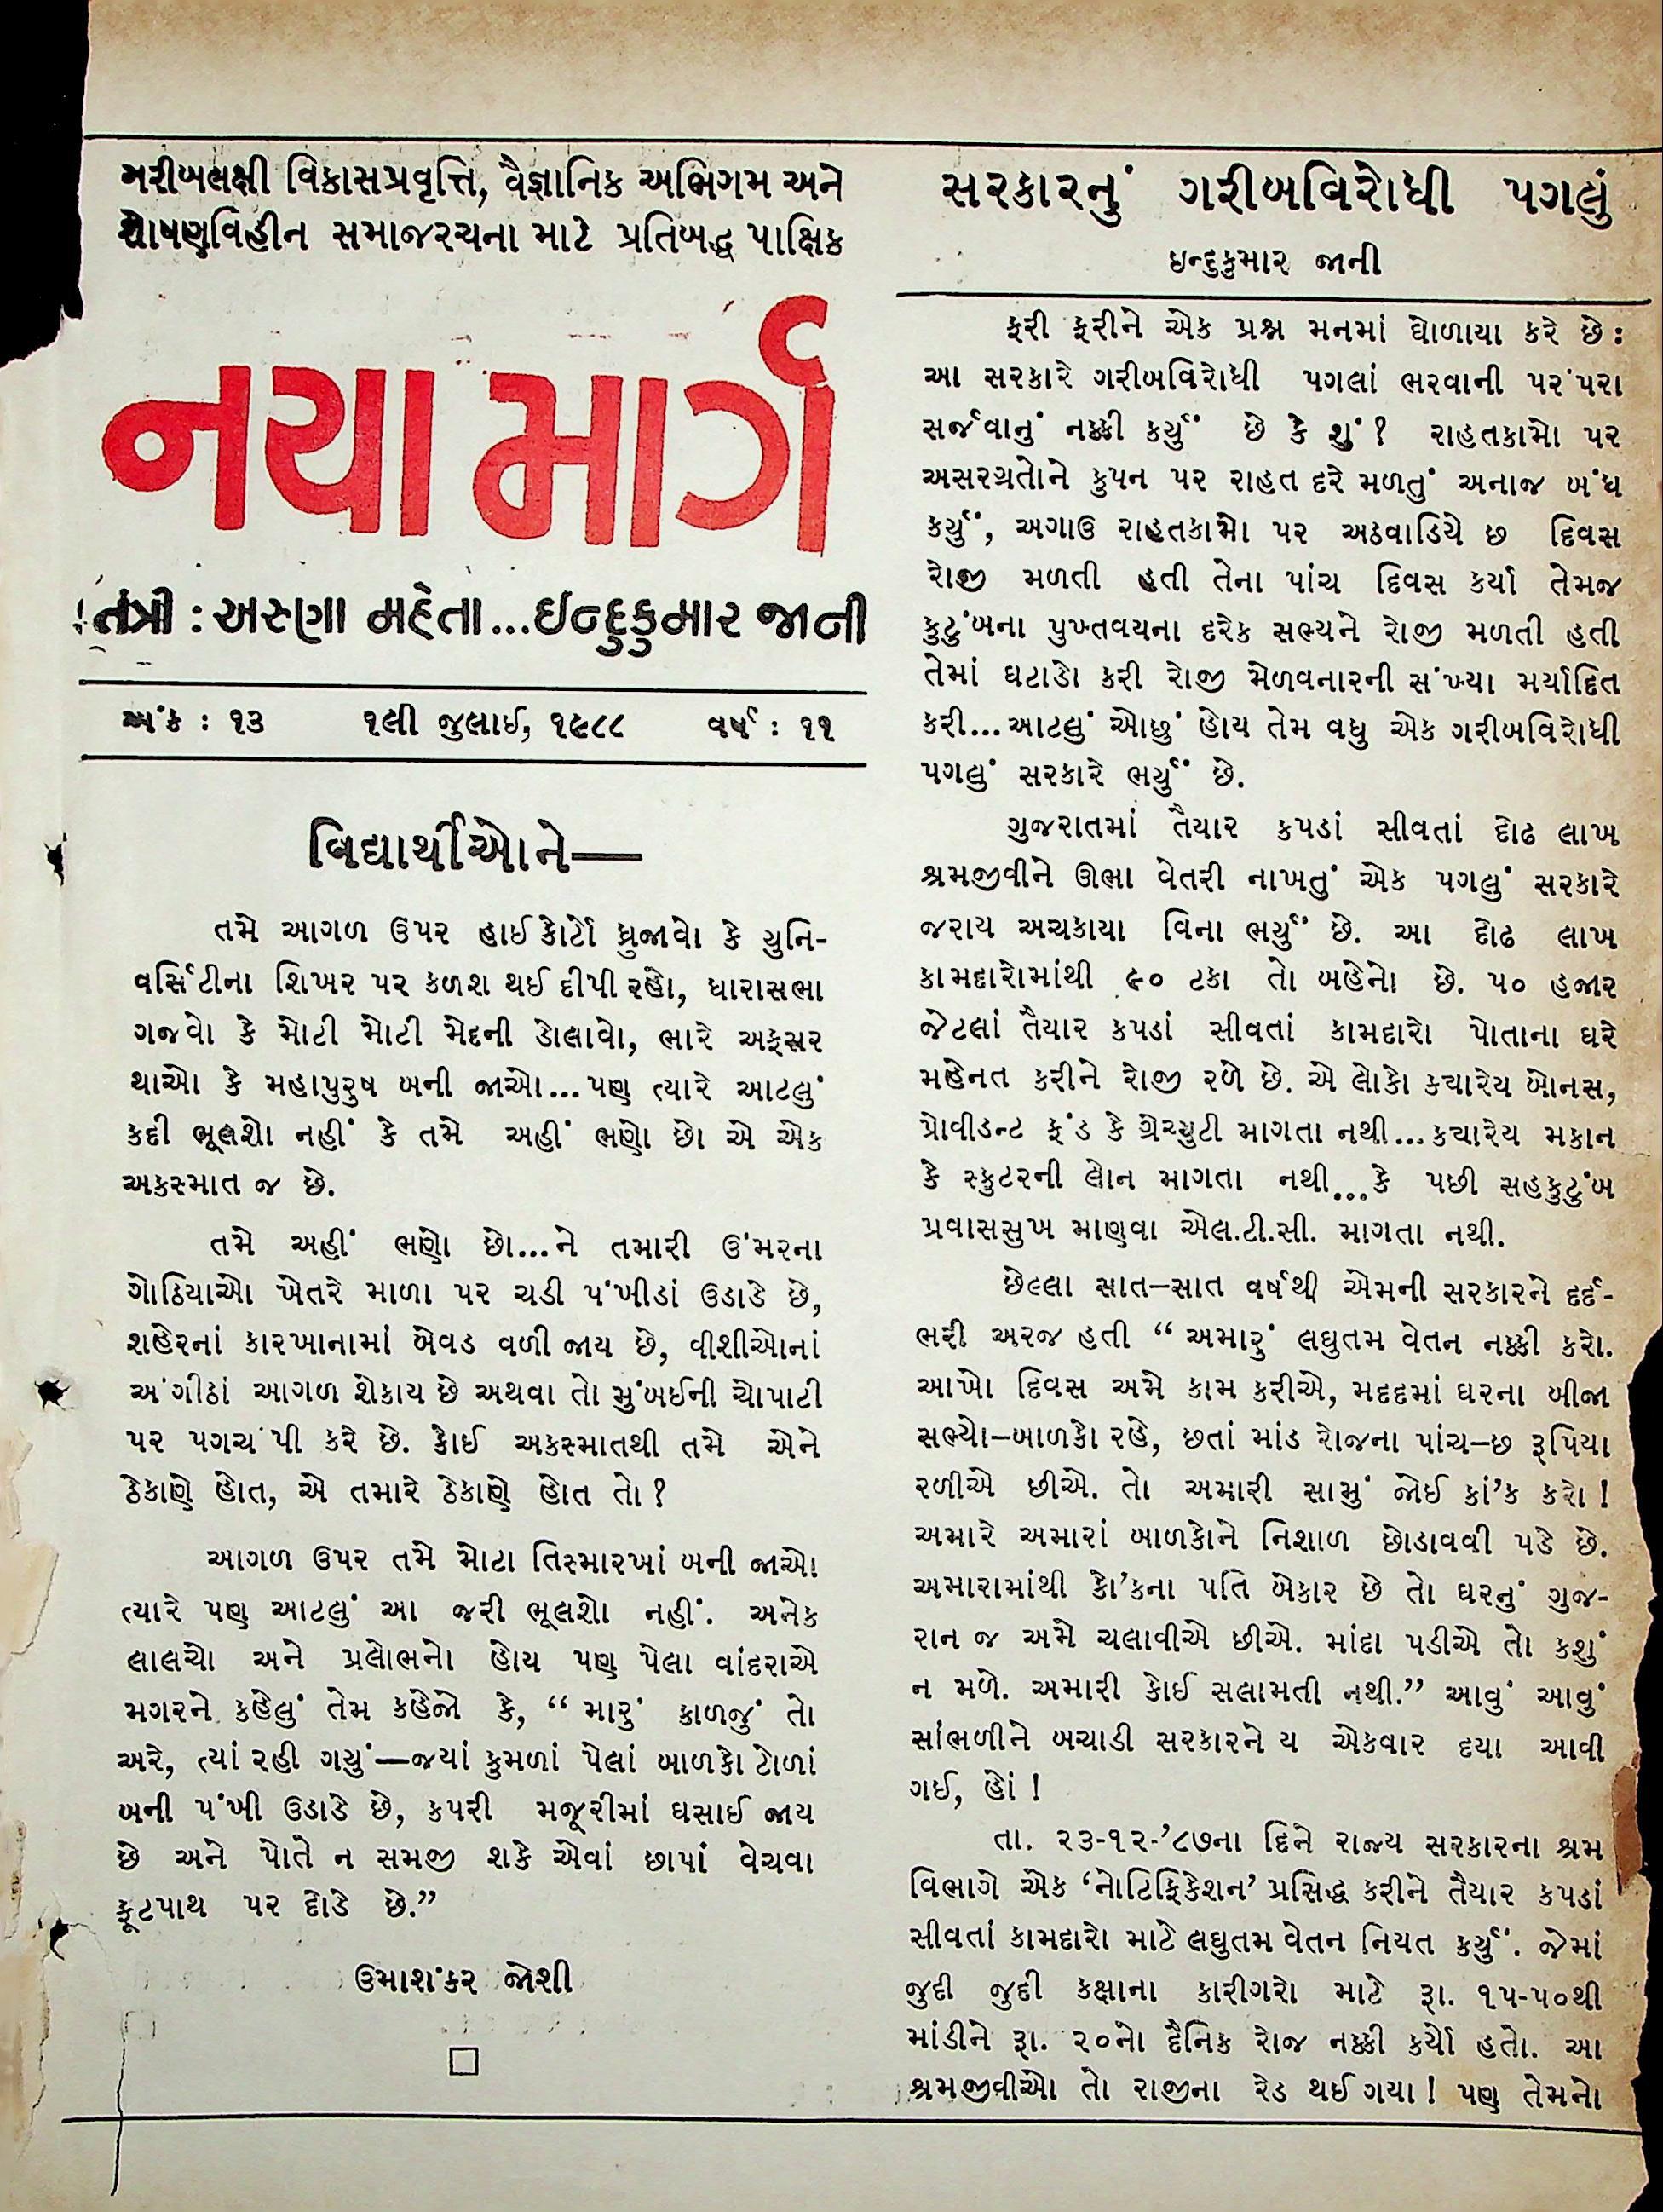 ગરીબલક્ષી વિકાસપ્રવૃત્તિ, વૈજ્ઞાનિક અભિગમ અને
શોષણવિહીન સમાજરચના માટે પ્રતિબદ્ધ પાક્ષિક
નયા માર્ગ
તંત્રી : અરુણા મહેતા...ઇન્દુકુમાર જાની
અંક : ૧૩ ૧લી જુલાઈ, ૧૯૮૮ વર્ષ : ૧૧
વિદ્યાર્થીઓને—
તમે આગળ ઉપર હાઈકોર્ટો ધ્રુજાવો કે યુનિ-
વર્સિટીના શિખર પર કળશ થઈ દીપી રહો, ધારાસભા
ગજવો કે મોટી મોટી મેદની ડોલાવો, ભારે અફસર
થાઓ કે મહાપુરુષ બની જાઓ...પણ ત્યારે આટલું
કદી ભૂલશો નહીં કે તમે અહીં ભણો છો એ એક
અકસ્માત જ છે.
તમે અહીં ભણો છો...ને તમારી ઉંમરના
ગોઠિયાઓ ખેતરે માળા પર ચડી પંખીડાં ઉડાડે છે,
શહેરનાં કારખાનામાં બેવડ વળી જાય છે, વીશીઓનાં
અંગીઠાં આગળ શેકાય છે અથવા તો મુંબઈની ચોપાટી
પર પગચંપી કરે છે. કોઈ અકસ્માતથી તમે એને
ઠેકાણે હોત, એ તમારે ઠેકાણે હોત તો?
આગળ ઉપર તમે મોટા તિસ્મારખાં બની જાઓ
ત્યારે પણ આટલું આ જરી ભૂલશો નહીં. અનેક
લાલચો અને પ્રલોભનો હોય પણ પેલા વાંદરાએ
મગરને કહેલું તેમ કહેજો કે, “ મારું કાળજું તો
અરે, ત્યાં રહી ગયું—જયાં કુમળાં પેલાં બાળકો ટોળાં
બની પંખી ઉડાડે છે, કપરી મજૂરીમાં ઘસાઈ જાય
છે અને પોતે ન સમજી શકે એવાં છાપાં વેચવા
ફૂટપાથ પર દોડે છે.”
ઉમાશંકર જોશી
સરકારનું ગરીબવિરોધી પગલું
ઇન્દુકુમાર જાની
ફરી ફરીને એક પ્રશ્ન મનમાં ઘોળાયા કરે છે :
આ સરકારે ગરીબવિરોધી પગલાં ભરવાની પરંપરા
સર્જવાનું નક્કી કર્યું છે કે શું? રાહતકામો પર
અસરગ્રતોને કુપન પર રાહત દરે મળતું અનાજ બંધ
કર્યું, અગાઉ રાહતકામો પર અઠવાડિયે છ દિવસ
રોજી મળતી હતી તેના પાંચ દિવસ કર્યા તેમજ
કુટુંબના પુખ્તવયના દરેક સભ્યને રોજી મળતી હતી
તેમાં ઘટાડો કરી રોજી મેળવનારની સંખ્યા મર્યાદિત
કરી...આટલું ઓછું હોય તેમ વધુ એક ગરીબવિરોધી
પગલું સરકારે ભર્યું છે.
ગુજરાતમાં તૈયાર કપડાં સીવતાં દોઢ લાખ
શ્રમજીવીને ઊભા વેતરી નાખતું એક પગલું સરકારે
જરાય અચકાયા વિના ભર્યું છે. આ દોઢ લાખ
કામદારોમાંથી ૯૦ ટકા તો બહેનો છે. ૫૦ હજાર
જેટલાં તૈયાર કપડાં સીવતાં કામદારો પોતાના ઘરે
મહેનત કરીને રોજી રળે છે. એ લોકો કયારેય બોનસ,
પ્રોવીડન્ટ ફંડ કે ગ્રેચ્યુટી માગતા નથી...કયારેય મકાન
કે સ્કુટરની લોન માગતા નથી...કે પછી સહકુટુંબ
પ્રવાસસુખ માણવા એલ.ટી.સી. માગતા નથી.
છેલ્લા સાત–સાત વર્ષથી એમની સરકારને દર્દ-
ભરી અરજ હતી “ અમારું લઘુતમ વેતન નક્કી કરો.
આખો દિવસ અમે કામ કરીએ, મદદમાં ઘરના બીજા
સભ્યો–બાળકો રહે, છતાં માંડ રોજના પાંચ–છ રૂપિયા
રળીએ છીએ. તો અમારી સામું જોઈ કાં’ક કરો !
અમારે અમારાં બાળકોને નિશાળ છોડાવવી પડે છે.
અમારામાંથી કો’કના પતિ બેકાર છે તો ઘરનું ગુજ-
રાન જ અમે ચલાવીએ છીએ. માંદા પડીએ તો કશું
ન મળે. અમારી કોઈ સલામતી નથી.” આવું આવું
સાંભળીને બચાડી સરકારને ય એકવાર દયા આવી
ગઈ, હોં !
તા. ૨૩-૧૨-’૮૭ના દિને રાજ્ય સરકારના શ્રમ
વિભાગે એક ‘નોટિફિકેશન’ પ્રસિદ્ધ કરીને તૈયાર કપડાં
સીવતાં કામદારો માટે લઘુતમ વેતન નિયત કર્યું. જેમાં
જુદી જુદી કક્ષાના કારીગરો માટે રૂા. ૧૫-૫૦થી
માંડીને રૂા. ૨૦નો દૈનિક રોજ નક્કી કર્યો હતો. આ
શ્રમજીવીઓ તો રાજીના રેડ થઈ ગયા ! પણ તેમનો